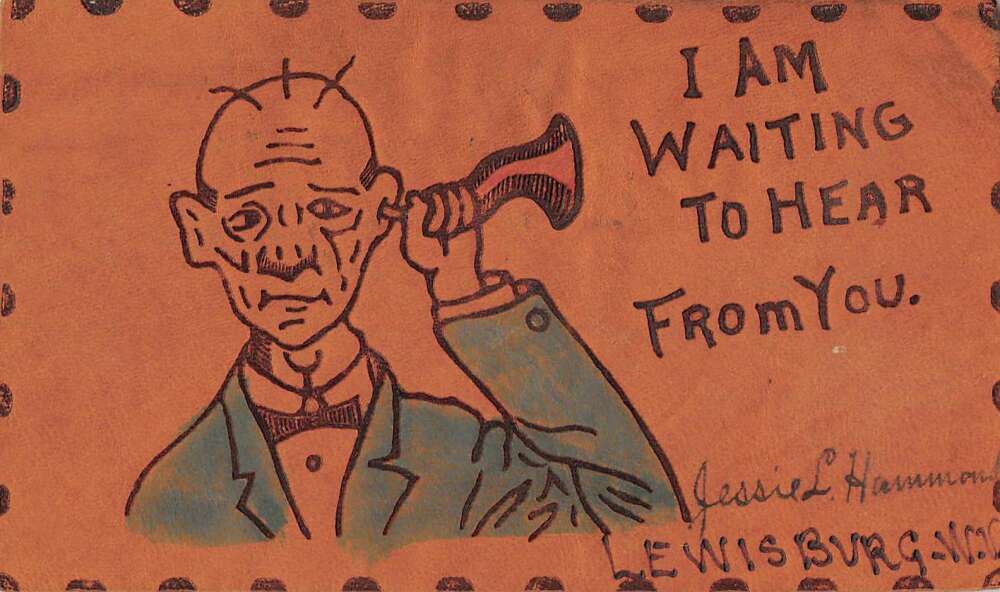 I AM
WAITING
TO HEAR
FROM YOU.
Jessie L. Hammond
LEWISBURG-W.V